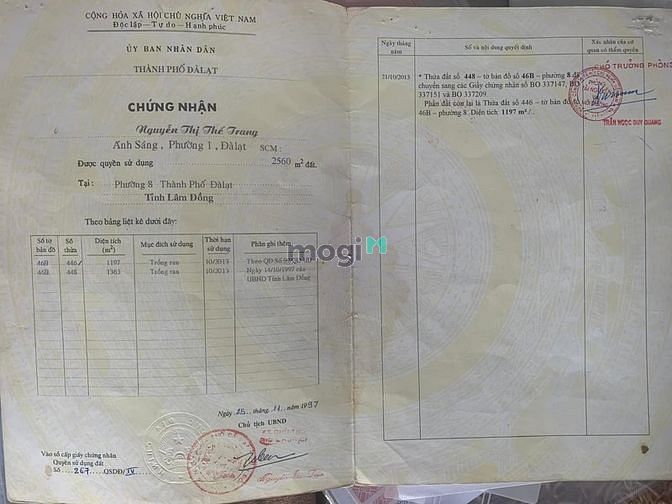 CỘNG HÒA XÃ HỘI CHỦ NGHĨA VIỆT NAM
Độc lập – Tự do – Hạnh phúc
ỦY BAN NHÂN DÂN
THÀNH PHỐ ĐÀLẠT
CHỨNG NHẬN
Nguyễn Thị Thế Trang
Ánh Sáng, Phường 1, Đàlạt SCM:
Được quyền sử dụng 2560 m² đất.
Tại: Phường 8 Thành Phố Đàlạt
Tỉnh Lâm Đồng
Theo bảng liệt kê dưới đây:
Số tờ bản đồ Số thửa Diện tích (m²) Mục đích sử dụng Thời hạn sử dụng Phần ghi thêm
46B 446 1197 Trồng rau 10/2013 Theo QĐ Số
46B 448 1363 Trồng rau 10/2013 Ngày 14/10/1997 của
UBND Tỉnh Lâm Đồng
mogi
Ngày 15 tháng 11 năm 1997
Chủ tịch UBND
Vào sổ cấp giấy chứng nhận
Quyền sử dụng đất
Số 267 QSDĐ/IV
Ngày tháng năm
Số và nội dung quyết định
Xác nhận của cơ quan có thẩm quyền
21/10/2013
* Thửa đất số 448 – tờ bản đồ số 46B – phường 8 đã
chuyển sang các Giấy chứng nhận số BO 337147, BO
337151 và BO 337209.
Phần đất còn lại là Thửa đất số 446 – tờ bản đồ số
46B – phường 8 Diện tích: 1197 m²/.
PHÓ TRƯỞNG PHÒNG
TRẦN NGỌC DUY QUANG